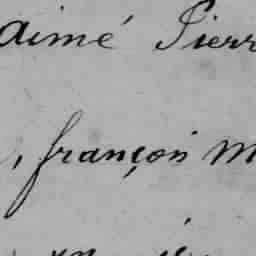 aimé Pierr
, françois M